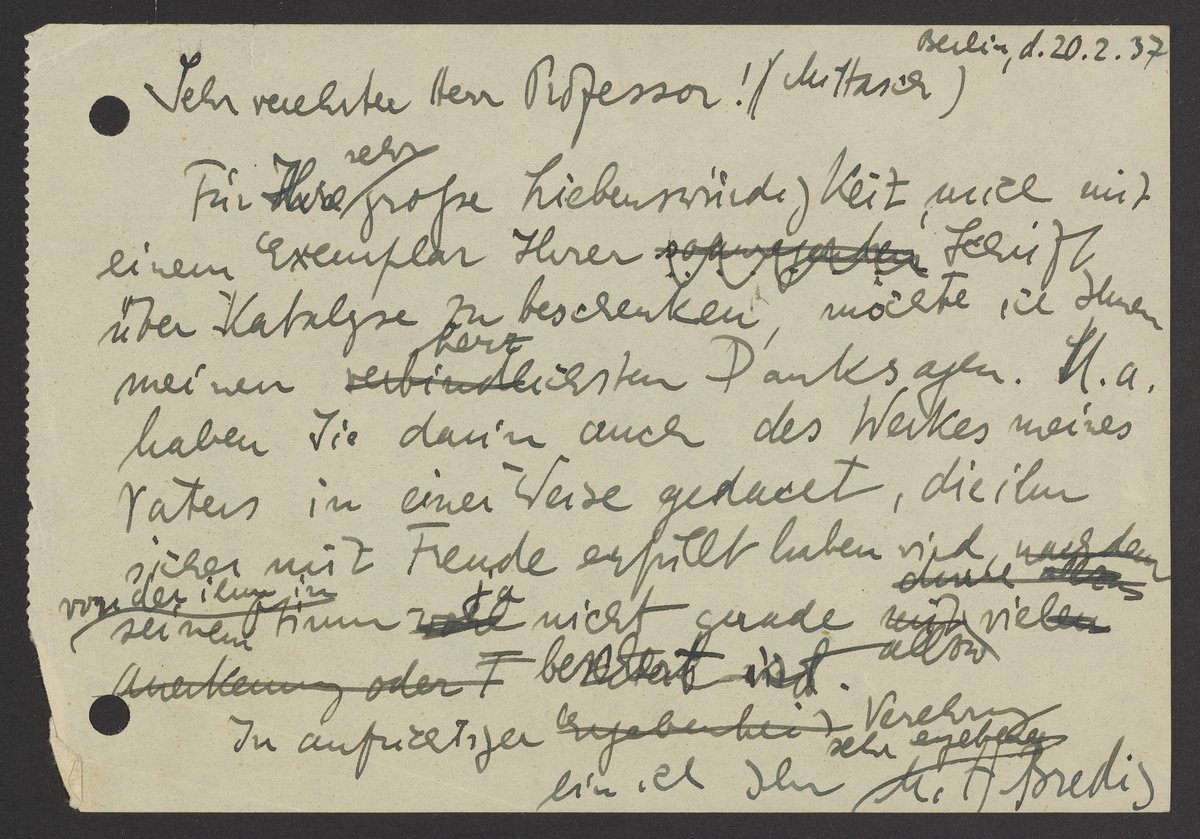 Berlin, d. 20.2.37
Sehr verehrter Herr Professor! (Mittasch)
sehr
Für Ihre große Liebenswürdigkeit, mich mit
einem Exemplar Ihrer Schrift
über Katalyse zu beschenken, möchte ich Ihnen
herz
meinen verbindlichsten Dank sagen. U. a.
haben Sie darin auch des Werkes meines
Vaters in einer Weise gedacht, die ihn
sicher mit Freude erfüllt haben wird, nachdem
von der ihm in
seinem ja nicht gerade mit vielen
Anerkennung oder F
In aufrichtiger Ergebenheit Verehrung
sehr ergebener
bin ich Ihr M. A. Bredig